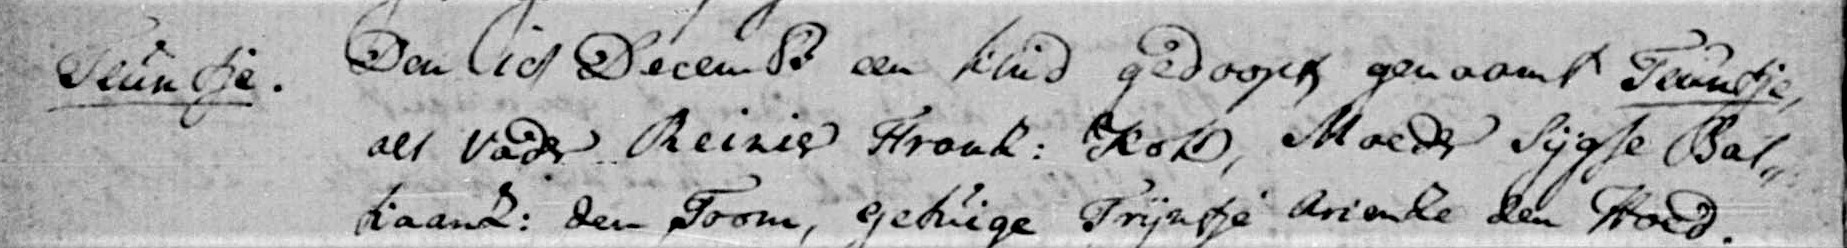 Teuntje. Den ict Decemb: een kind gedoopt genaamt Teuntje,
als vader Reinier Frank: Kok, Moeder Sijgse Bal„
haanz: den Toom, getuige Trijntje Ariensse den Hoed.